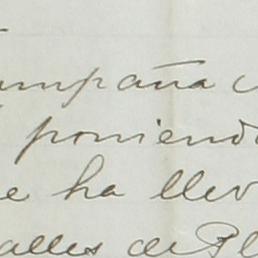 ampaña
poniend
e ha llev
alles de Pl